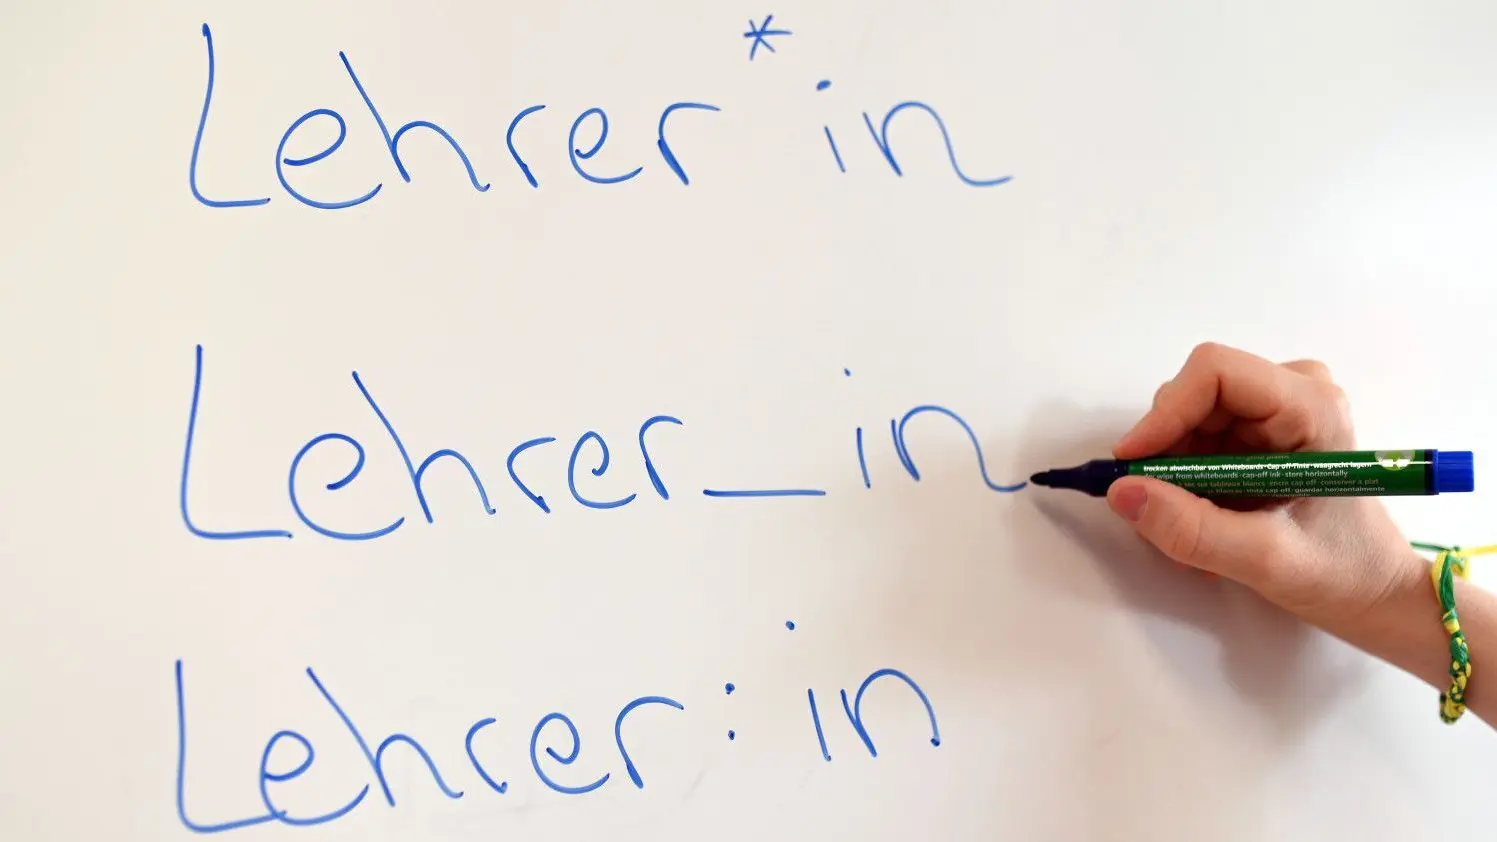 Lehrer*in
Lehrer_in
Lehrer:in
trocken abwischbar von Whiteboards · Cap off-Tinte · waagrecht lagern
wipe from whiteboards · cap-off ink · store horizontally
sec sur tableaux blancs · encre cap off · conserver à plat
blancas · tinta cap off · guardar horizontalmente